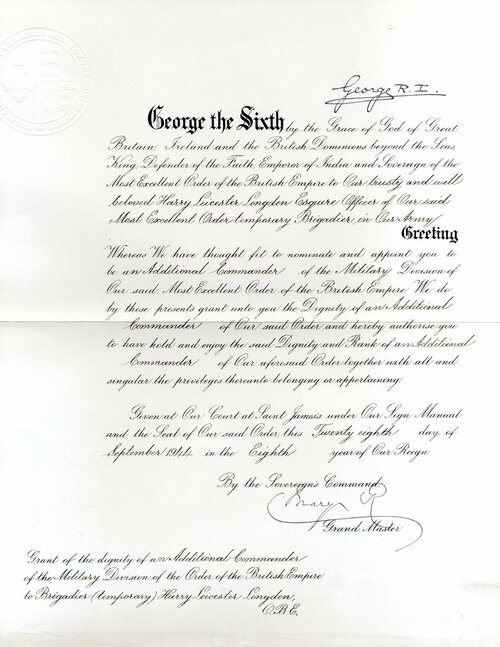 George R. I.
George the Sixth by the Grace of God of Great
Britain, Ireland and the British Dominions beyond the Seas
King, Defender of the Faith, Emperor of India and Sovereign of the
Most Excellent Order of the British Empire to Our trusty and well
beloved Harry Leicester Longden Esquire Officer of Our said
Most Excellent Order temporary Brigadier in Our Army
Greeting
Whereas We have thought fit to nominate and appoint you to
be an Additional Commander of the Military Division of
Our said Most Excellent Order of the British Empire We do
by these presents grant unto you the Dignity of an Additional
Commander of Our said Order and hereby authorise you
to have hold and enjoy the said Dignity and Rank of an Additional
Commander of Our aforesaid Order together with all and
singular the privileges thereunto belonging or appertaining
Given at Our Court at Saint James's under Our Sign Manual
and the Seal of Our said Order this Twenty eighth day of
September 1944 in the Eighth year of Our Reign
By the Sovereign's Command
Mary R
Grand Master
Grant of the dignity of an Additional Commander
of the Military Division of the Order of the British Empire
to Brigadier (temporary) Harry Leicester Longden,
O.B.E.